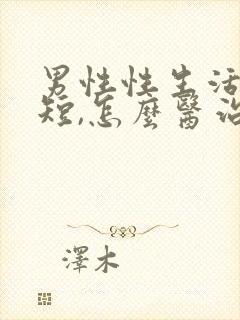 男性性生活
短,怎麼醫治
澤木